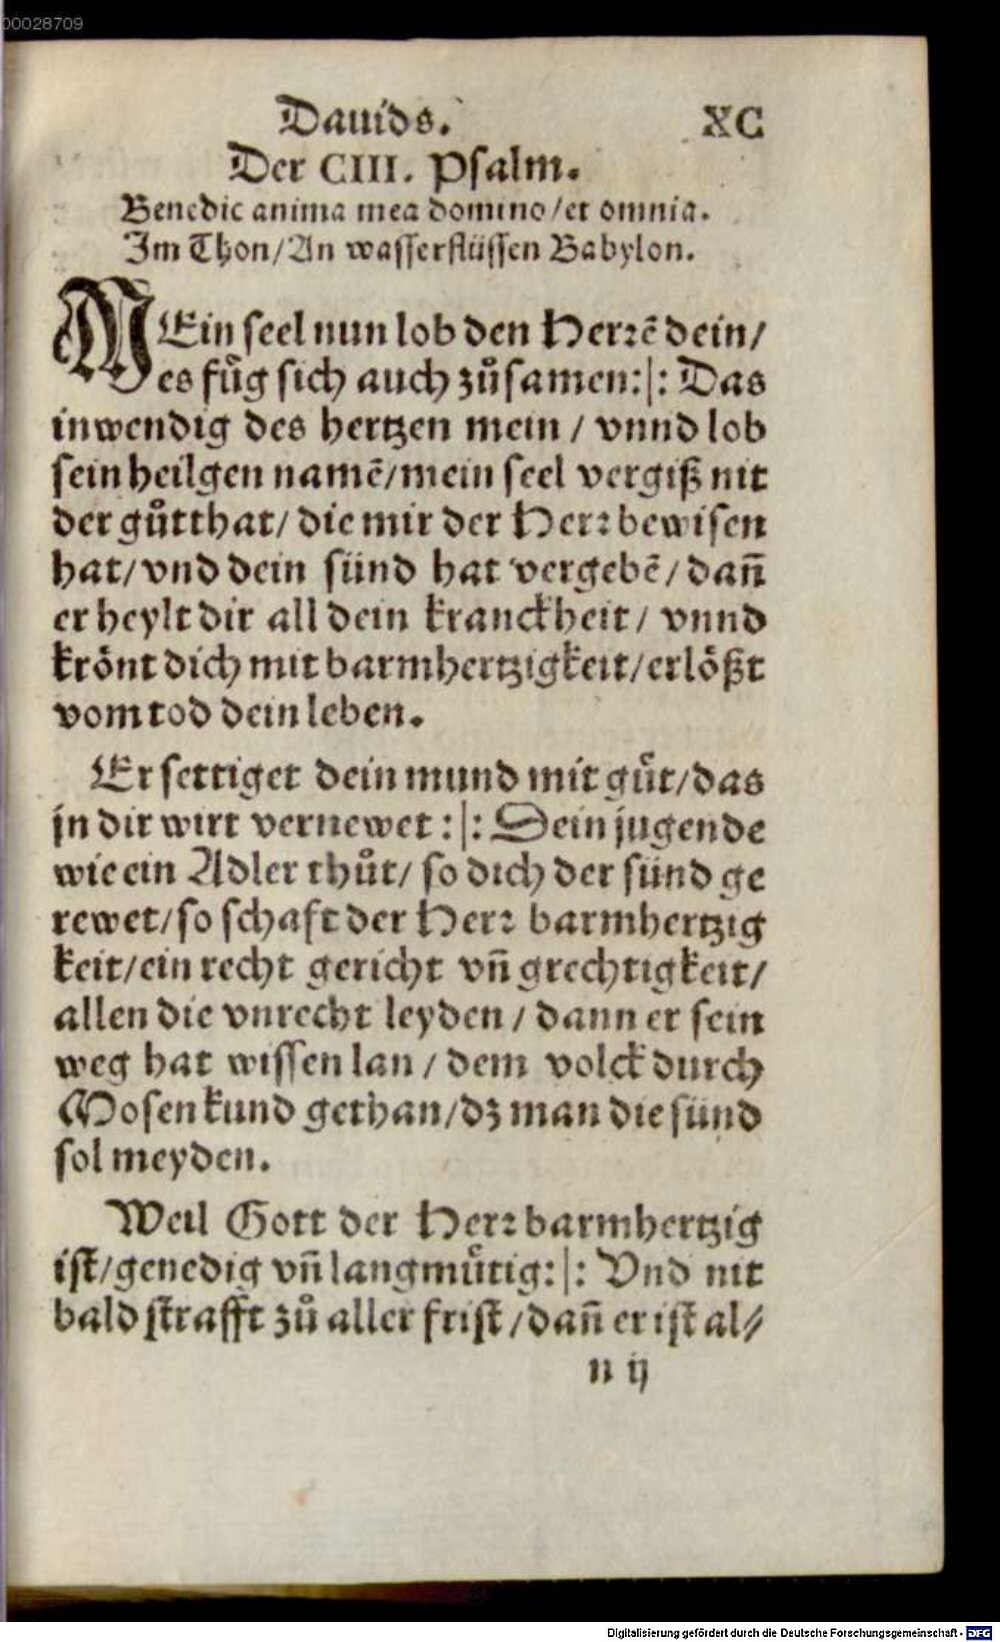 00028709
Dauids. XC
Der CIII. Psalm.
Benedic anima mea domino/et omnia.
Im Thon/An wasserflüssen Babylon.
MEin seel nun lob den Herꝛē dein/
es fuͤg sich auch zuͦsamen:|: Das
inwendig des hertzen mein / vnnd lob
sein heilgen namē/mein seel vergiß nit
der guͦtthat/ die mir der Herꝛ bewisen
hat/vnd dein sünd hat vergebē/dañ
er heylt dir all dein kranckheit/ vnnd
kroͤnt dich mit barmhertzigkeit/erloͤßt
vom tod dein leben.
Er settiget dein mund mit guͤt/das
jn dir wirt vernewet :|: Dein jugende
wie ein Adler thuͦt/ so dich der sünd ge
rewet/so schaft der Herꝛ barmhertzig
keit/ein recht gericht vñ grechtigkeit/
allen die vnrecht leyden / dann er sein
weg hat wissen lan / dem volck durch
Mosen kund gethan/dz man die sünd
sol meyden.
Weil Gott der Herꝛ barmhertzig
ist/genedig vñ langmuͤtig:|: Vnd nit
bald strafft zuͦ aller frist/dañ er ist al⸗
n ij
Digitalisierung gefördert durch die Deutsche Forschungsgemeinschaft - DFG